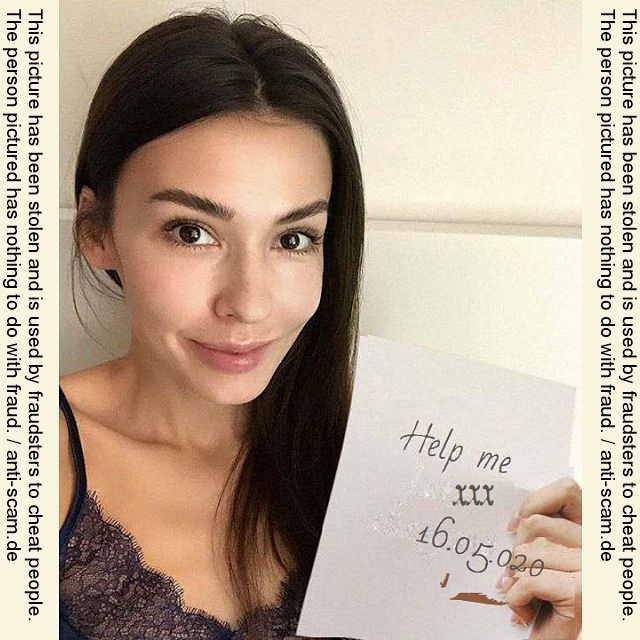 This picture has been stolen and is used by fraudsters to cheat people.
The person pictured has nothing to do with fraud. / anti-scam.de
Help me
xxx
16.05.020
This picture has been stolen and is used by fraudsters to cheat people.
The person pictured has nothing to do with fraud. / anti-scam.de